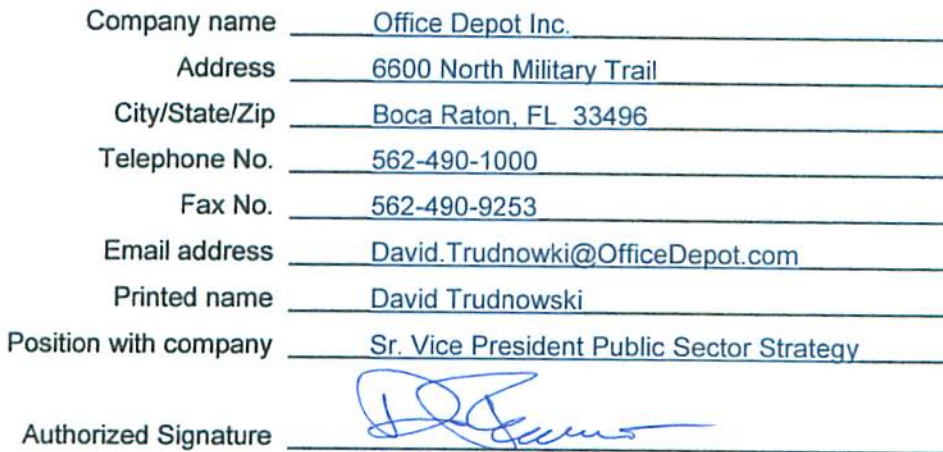 Company name Office Depot Inc.
Address 6600 North Military Trail
City/State/Zip Boca Raton, FL 33496
Telephone No. 562-490-1000
Fax No. 562-490-9253
Email address David.Trudnowki@OfficeDepot.com
Printed name David Trudnowski
Position with company Sr. Vice President Public Sector Strategy
Authorized Signature